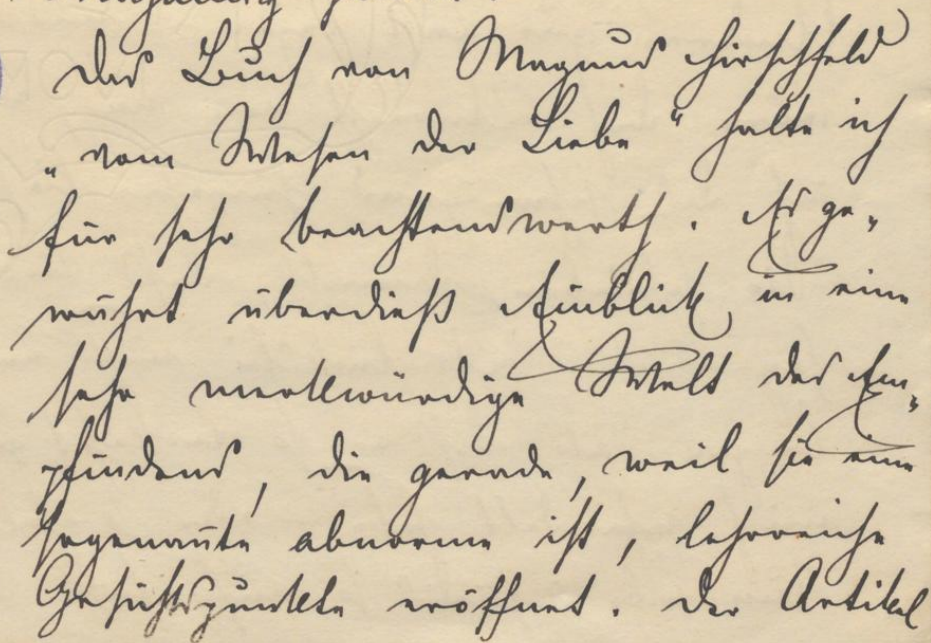 Das Buch von Magnus Hirschfeld
„vom Wesen der Liebe“ halte ich
für sehr beachtenswerth. Es ge„
währt überdieß Einblick in eine
sehr merkwürdige Welt des Em„
pfindens, die gerade, weil sie eine
sogenannte abnorme ist, lehrreiche
Gesichtspunkte eröffnet. Der Artikel